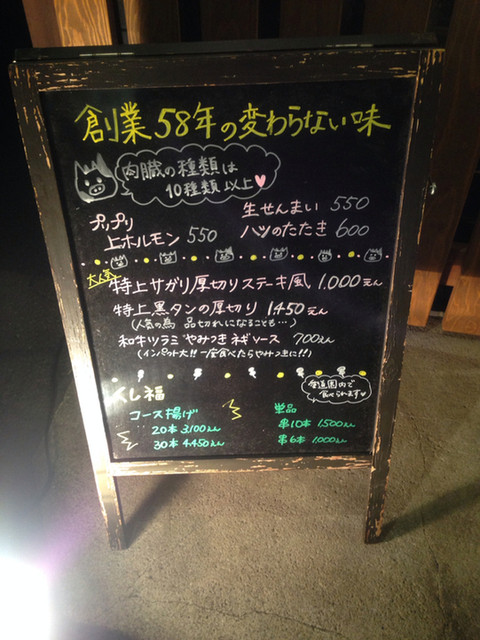 創業58年の変わらない味
内臓の種類は
10種類以上
プリプリ
上ホルモン 550
生せんまい 550
ハツのたたき 600
大人気
特上サガリ厚切りステーキ風 1.000えん
特上黒タンの厚切り 1450えん
(人気の為 品切れになることも…)
和牛ツラミ やみつきネギソース 700えん
(インパクト大!! 一度食べたらやみつきに!!)
くし福
コース揚げ
20本 3.100えん
30本 4.450えん
で
食べられます
単品
串10本 1.500えん
串6本 1.000えん